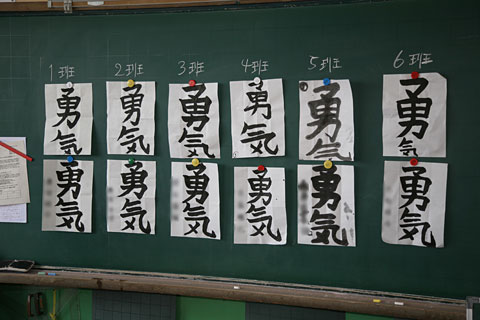 1班 2班 3班 4班 5班 6班
勇気 勇気 勇気 勇気 勇気 勇気
勇気 勇気 勇気 勇気 勇気 勇気